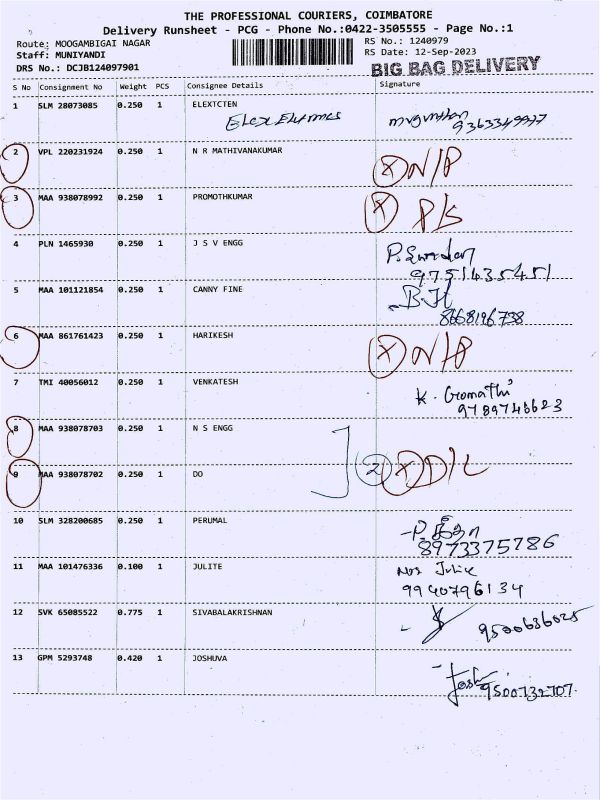 THE PROFESSIONAL COURIERS, COIMBATORE
Delivery Runsheet - PCG - Phone No.:0422-3505555 - Page No.:1
Route: MOOGAMBIGAI NAGAR
RS No.: 1240979
Staff: MUNIYANDI
RS Date: 12-Sep-2023
DRS No.: DCJB124097901
BIG BAG DELIVERY
S No Consignment No Weight PCS Consignee Details Signature
1 SLM 28073085 0.250 1 ELEXTCTEN
9363349977
2 VPL 220231924 0.250 1 N R MATHIVANAKUMAR X N/P
3 MAA 938078992 0.250 1 PROMOTHKUMAR X P/S
4 PLN 1465930 0.250 1 J S V ENGG
9751435451
5 MAA 101121854 0.250 1 CANNY FINE
8668196738
6 MAA 861761423 0.250 1 HARIKESH X N/P
7 TMI 40056012 0.250 1 VENKATESH K. Gomathi
9789746623
8 MAA 938078703 0.250 1 N S ENGG
9 MAA 938078702 0.250 1 DO 2 X D/L
10 SLM 328200685 0.250 1 PERUMAL
8973375786
11 MAA 101476336 0.100 1 JULITE
9940796134
12 SVK 65085522 0.775 1 SIVABALAKRISHNAN 9500636025
13 GPM 5293748 0.420 1 JOSHUVA
9500732707.